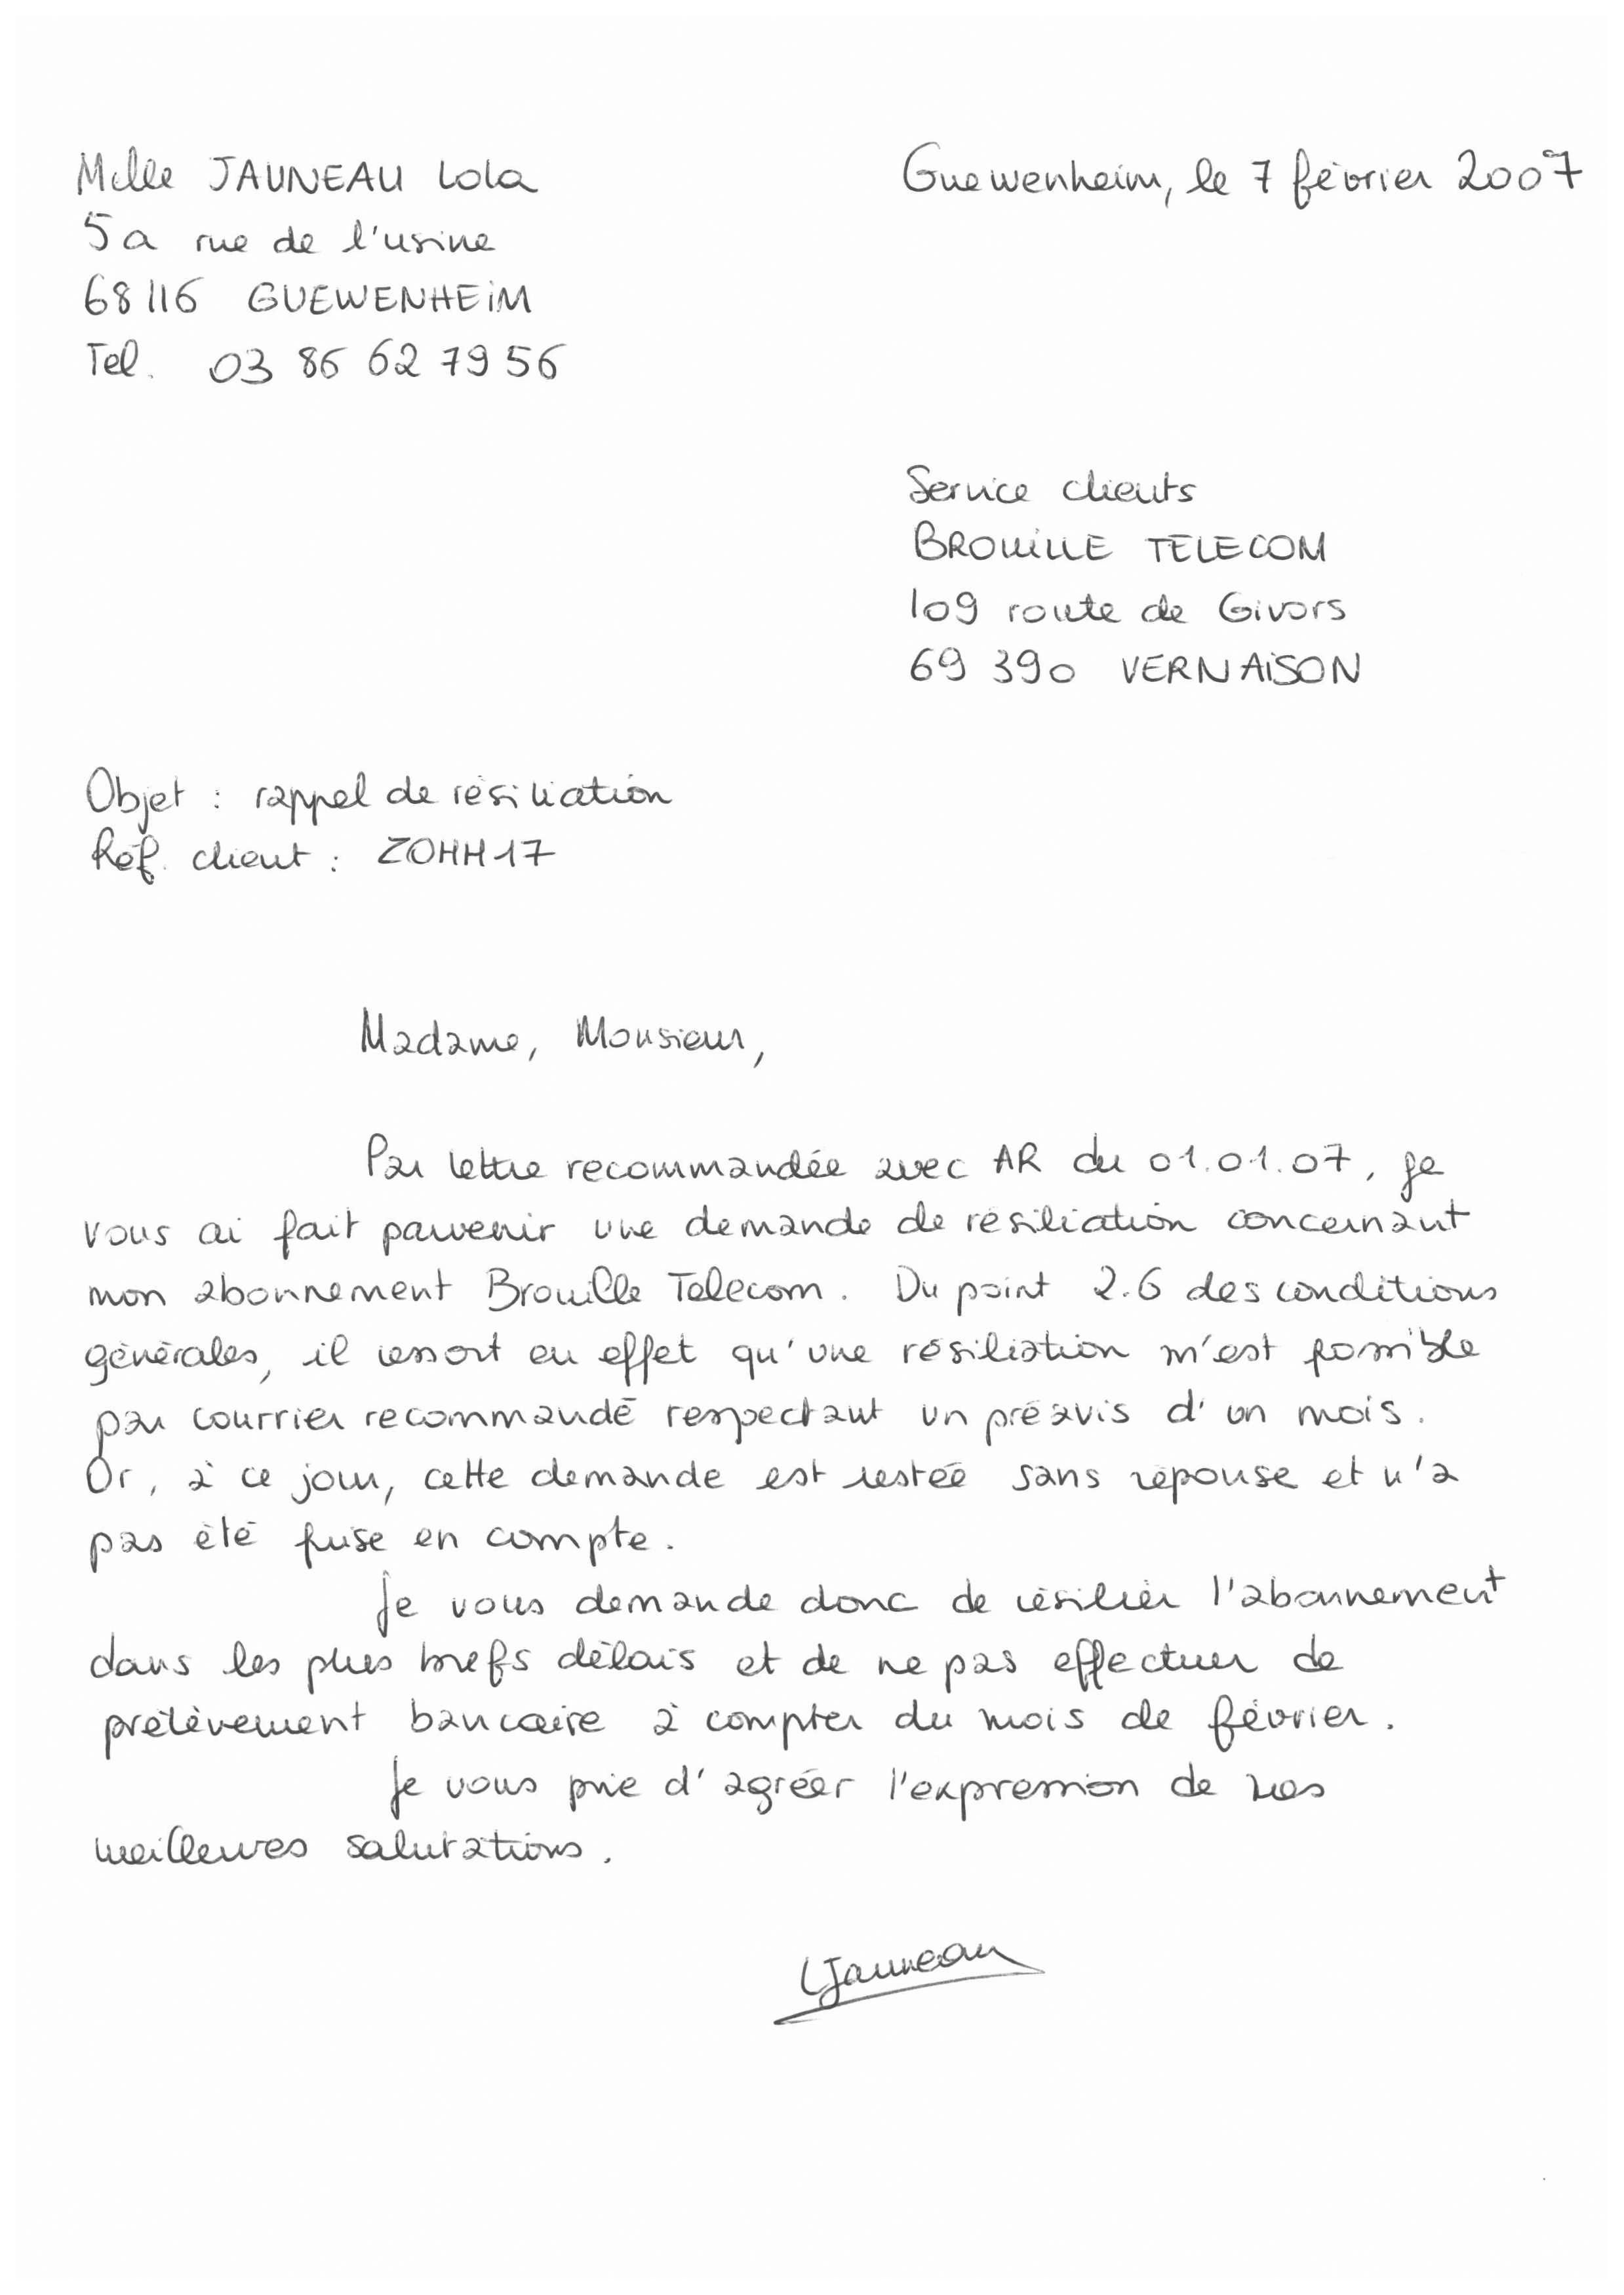 Melle JAUNEAU Lola
5a rue de l'usine
68116 GUEWENHEIM
Tel. 03 86 62 79 56
Guewenheim, le 7 février 2007
Service clients
BROUILLE TELECOM
109 route de Givors
69 390 VERNAISON
Objet : rappel de résiliation
Réf. client : ZOHH17
Madame, Monsieur,
Par lettre recommandée avec AR du 01.01.07, je
vous ai fait parvenir une demande de résiliation concernant
mon abonnement Brouille Telecom. Du point 2.6 des conditions
générales, il ressort en effet qu'une résiliation m'est possible
par courrier recommandé respectant un préavis d'un mois.
Or, à ce jour, cette demande est restée sans réponse et n'a
pas été prise en compte.
Je vous demande donc de résilier l'abonnement
dans les plus brefs délais et de ne pas effectuer de
prélèvement bancaire à compter du mois de février.
Je vous prie d'agréer l'expression de mes
meilleures salutations.
LJauneau